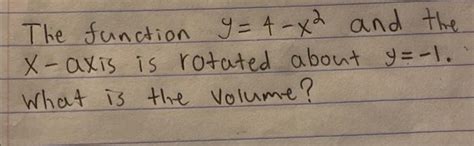 The function y = 4 - x² and the
x-axis is rotated about y = -1.
What is the volume?